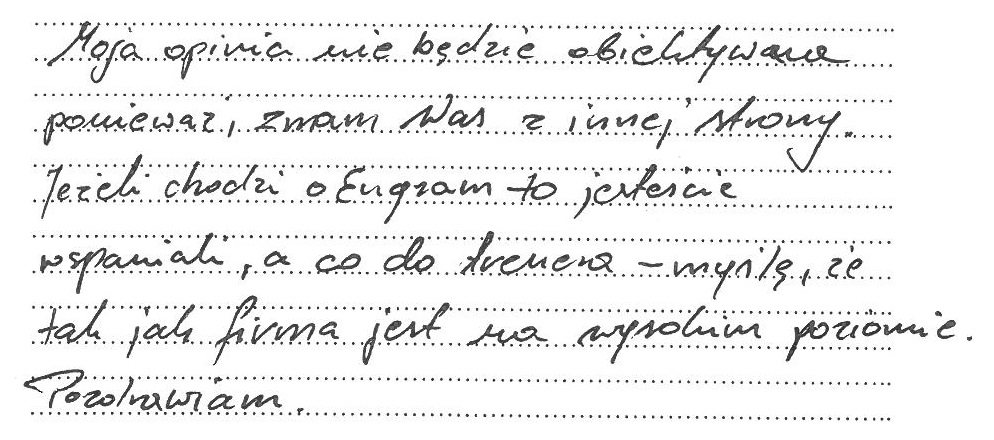 Moja opinia nie będzie obiektywana
ponieważ, znam Was z innej strony.
Jeżeli chodzi o Engram to jesteście
wspaniali, a co do trenera – myślę, że
tak jak firma jest na wysokim poziomie.
Pozdrawiam.